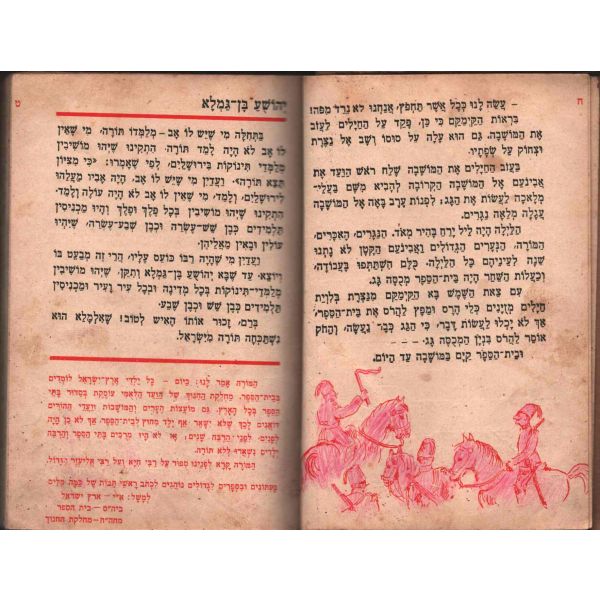 ח
– עֲשֵׂה לָנוּ כְּכָל אֲשֶׁר תַּחְפֹּץ, אֲנַחְנוּ לֹא נֵרֵד מִפֹּה!
בִּרְאוֹת הַקַּיְמַקַּם כִּי כֵן, פָּקַד עַל הַחַיָּלִים לַעֲזֹב
אֶת הַמּוֹשָׁבָה. גַּם הוּא עָלָה עַל סוּסוֹ וְשָׁב אֶל נָצְרַת
וּצְחוֹק עַל שְׂפָתָיו.
בַּעֲזֹב הַחַיָּלִים אֶת הַמּוֹשָׁבָה שָׁלַח רֹאשׁ הַוַּעַד אֶת
אֲבִינֹעַם אֶל הַמּוֹשָׁבָה הַקְּרוֹבָה לְהָבִיא מִשָּׁם בַּעֲלֵי־
מְלָאכָה לַעֲשׂוֹת אֶת הַגָּג. לִפְנוֹת עֶרֶב בָּאָה אֶל הַמּוֹשָׁבָה
עֲגָלָה מְלֵאָה נַגָּרִים.
הַלַּיְלָה הָיָה לֵיל יָרֵחַ בָּהִיר מְאֹד. הַנַּגָּרִים, הָאִכָּרִים,
הַמּוֹרֶה, הַנְּעָרִים הַגְּדוֹלִים וַאֲבִינֹעַם הַקָּטָן לֹא נָתְנוּ
שֵׁנָה לְעֵינֵיהֶם כָּל הַלַּיְלָה. כֻּלָּם הִשְׁתַּתְּפוּ בַּעֲבוֹדָה,
וְכַעֲלוֹת הַשַּׁחַר הָיָה בֵית־הַסֵּפֶר מְכֻסֶּה גַג.
עִם צֵאת הַשֶּׁמֶשׁ בָּא הַקַּיְמַקַּם מִנָּצְרַת בְּלִוְיַת
חַיָּלִים מְזֻיָּנִים כְּלֵי הֶרֶס וּמַפָּץ לַהֲרֹס אֶת בֵּית־הַסֵּפֶר,
אַךְ לֹא יָכְלוּ לַעֲשׂוֹת דָּבָר, כִּי הַגָּג כְּבָר נַעֲשָׂה, וְהַחֹק
אוֹסֵר לַהֲרֹס בִּנְיָן הַמְכֻסֶּה גָג.
וּבֵית־הַסֵּפֶר קַיָּם בַּמּוֹשָׁבָה עַד הַיּוֹם.
ט
יְהוֹשֻׁעַ בֶּן־גַּמְלָא
בַּתְּחִלָּה מִי שֶׁיֵּשׁ לוֹ אָב – מְלַמְּדוֹ תוֹרָה, מִי שֶׁאֵין
לוֹ אָב לֹא הָיָה לָמֵד תּוֹרָה. הִתְקִינוּ שֶׁיְּהוּ מוֹשִׁיבִין
מְלַמְּדֵי תִינוֹקוֹת בִּירוּשָׁלַיִם, לְפִי שֶׁאָמְרוּ: «כִּי מִצִּיּוֹן
תֵּצֵא תוֹרָה». וַעֲדַיִן מִי שֶׁיֵּשׁ לוֹ אָב, הָיָה אָבִיו מַעֲלֵהוּ
לִירוּשָׁלַיִם, וּמִי שֶׁאֵין לוֹ אָב לֹא הָיָה עוֹלֶה וְלָמֵד,
הִתְקִינוּ שֶׁיְּהוּ מוֹשִׁיבִין בְּכָל פֶּלֶךְ וָפֶלֶךְ וְהָיוּ מַכְנִיסִין
תַּלְמִידִים כְּבֶן שֵׁשׁ־עֶשְׂרֵה וּכְבֶן שְׁבַע־עֶשְׂרֵה, שֶׁיִּהְיוּ
עוֹלִין וּבָאִין מֵאֲלֵיהֶן.
וַעֲדַיִן מִי שֶׁהָיָה רַבּוֹ כוֹעֵס עָלָיו, הֲרֵי זֶה מְבַעֵט בּוֹ
וְיוֹצֵא. עַד שֶׁבָּא יְהוֹשֻׁעַ בֶּן־גַּמְלָא וְתִקֵּן, שֶׁיְּהוּ מוֹשִׁיבִין
מְלַמְּדֵי־תִינוֹקוֹת בְּכָל מְדִינָה וּבְכָל עִיר וָעִיר וּמַכְנִיסִין
תַּלְמִידִים כְּבֶן שֵׁשׁ וּכְבֶן שֶׁבַע.
בְּרַם, זָכוּר אוֹתוֹ הָאִישׁ לְטוֹב! שֶׁאִלְמָלֵא הוּא
נִשְׁתַּכְּחָה תוֹרָה מִיִּשְׂרָאֵל.
הַמּוֹרָה אָמַר לָנוּ: כַּיּוֹם – כָּל יַלְדֵי אֶרֶץ־יִשְׂרָאֵל לוֹמְדִים
בְּבֵית־הַסֵּפֶר. מַחְלֶקֶת הַחִנּוּךְ שֶׁל הַוַּעַד הַלְּאֻמִּי עוֹסֶקֶת בְּסִדּוּר בָּתֵּי
הַסֵּפֶר בְּכָל הָאָרֶץ. גַּם מוֹעֲצוֹת הֶעָרִים וְהַמּוֹשָׁבוֹת וְוַעֲדֵי הַהוֹרִים
דּוֹאֲגִים לְכָךְ שֶׁלֹּא יִשָּׁאֵר אַף יֶלֶד מִחוּץ לְבֵית־הַסֵּפֶר. אַךְ לֹא כֵן הָיָה
לְפָנִים. לִפְנֵי הַרְבֵּה שָׁנִים, לֹא הָיוּ מְרֻבִּים בָּתֵּי הַסֵּפֶר וְהַרְבֵּה
יְלָדִים נִשְׁאֲרוּ לְלֹא תוֹרָה.
הַמּוֹרָה קָרָא לְפָנֵינוּ סִפּוּר עַל רַבִּי חִיָּא וְעַל רַבִּי אֱלִיעֶזֶר הַגָּדוֹל.
בָּעִתּוֹנִים וּבַסְּפָרִים לַגְּדוֹלִים נוֹהֲגִים לִכְתֹּב רָאשֵׁי תֵבוֹת שֶׁל כַּמָּה מִלִּים
לְמָשָׁל: א"י – ארץ ישראל
ביה"ס – בית הספר
מחה"ח – מחלקת החנוך